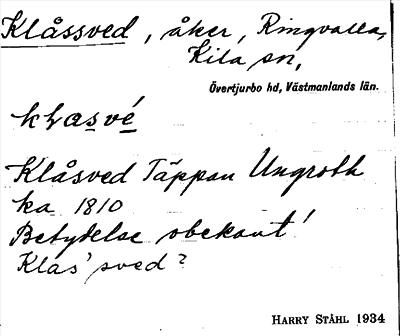 Klåssved, åker, Ringvalla,
Kila sn,
Övertjurbo hd, Västmanlands län.
klasvé
Klåsved Täppan Ungroth
ka 1810
Betydelse obekant!
Klas' sved?
HARRY STÅHL 1934